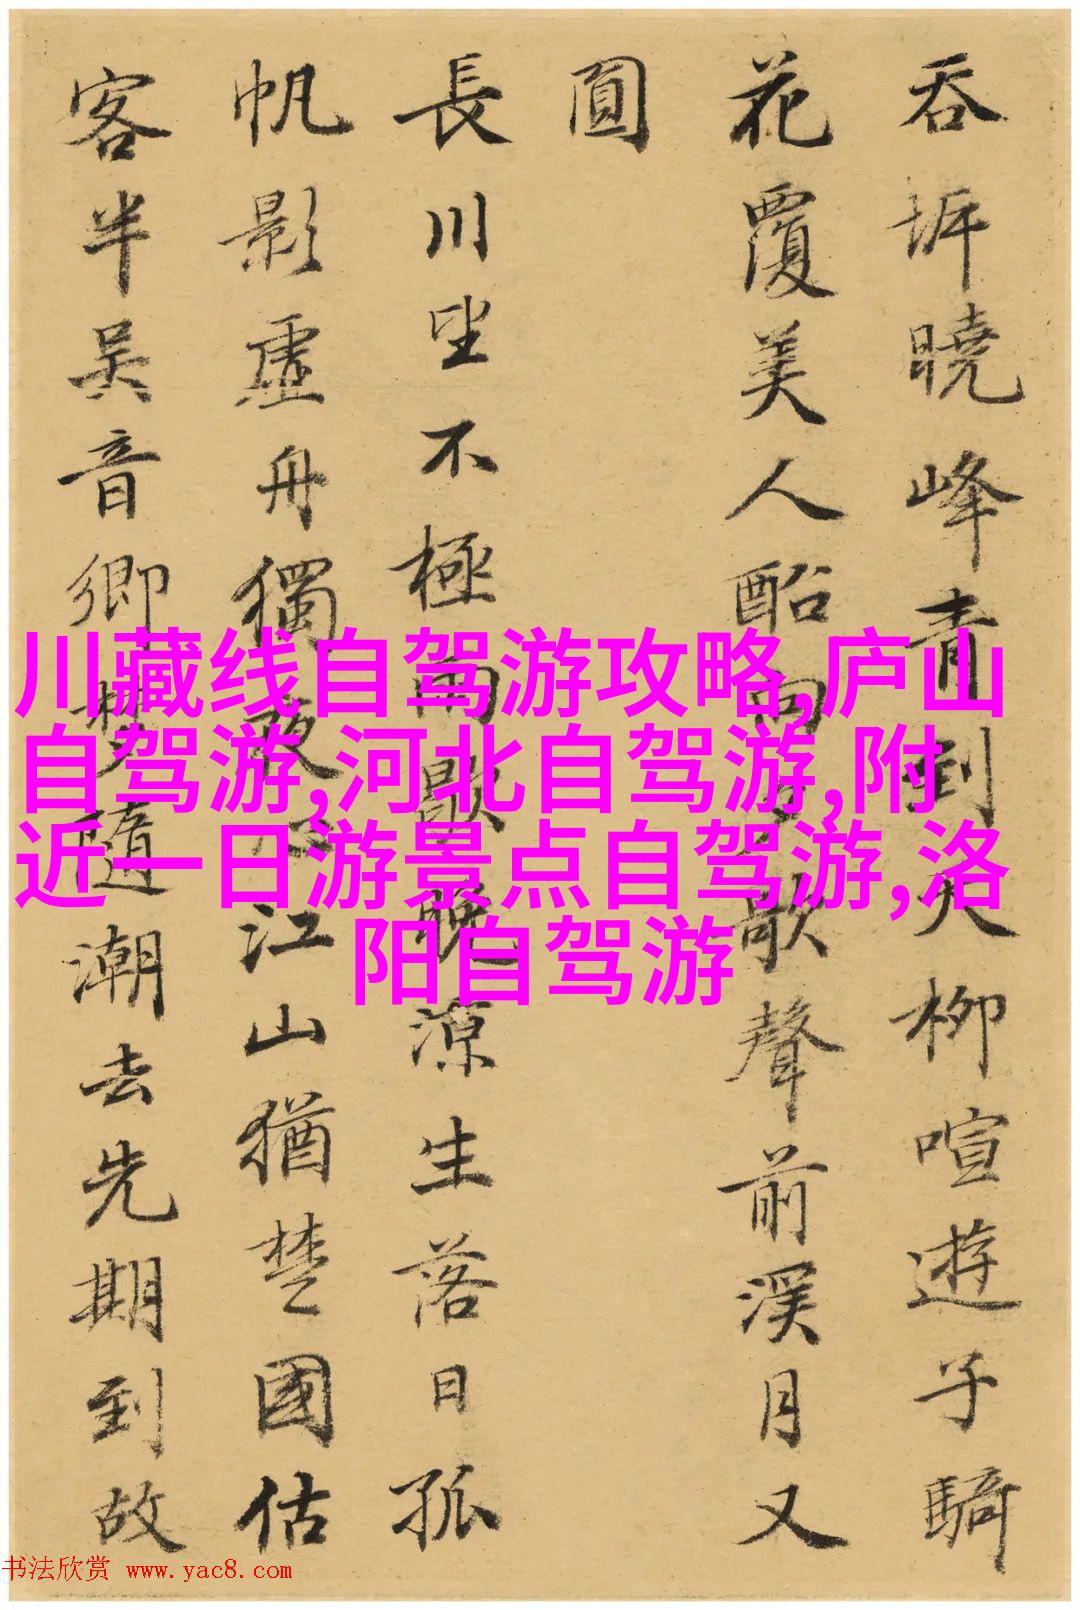 吞坼曉峰青到天柳喧遊子騎
花覆美人酩向夕歌聲前溪月又
圓
長川望不極雨歇晚涼生落日孤
帆影虛舟獨夜心江山猶楚國估
客半吳音鄉夢隨潮去先期到故
川藏线自驾游攻略,庐山
自驾游,河北自驾游,附
近一日游景点自驾游,洛
阳自驾游
书法欣赏 www.yac8.com